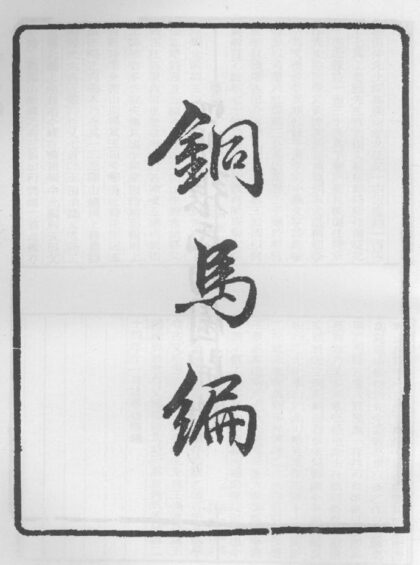 銅馬編